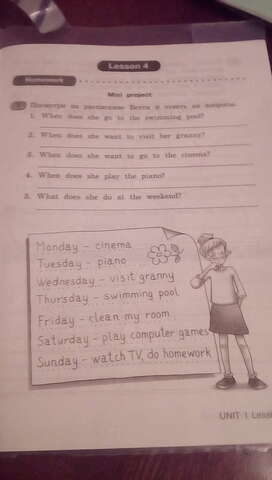 Lesson 4
Homework
Mini project
Посмотри на расписание Бетси и ответь на вопросы.
1. When does she go to the swimming pool?
2. When does she want to visit her granny?
3. When does she want to go to the cinema?
4. When does she play the piano?
5. What does she do at the weekend?
Monday – cinema
Tuesday – piano
Wednesday – visit granny
Thursday – swimming pool
Friday – clean my room
Saturday – play computer games
Sunday – watch TV, do homework
UNIT 1